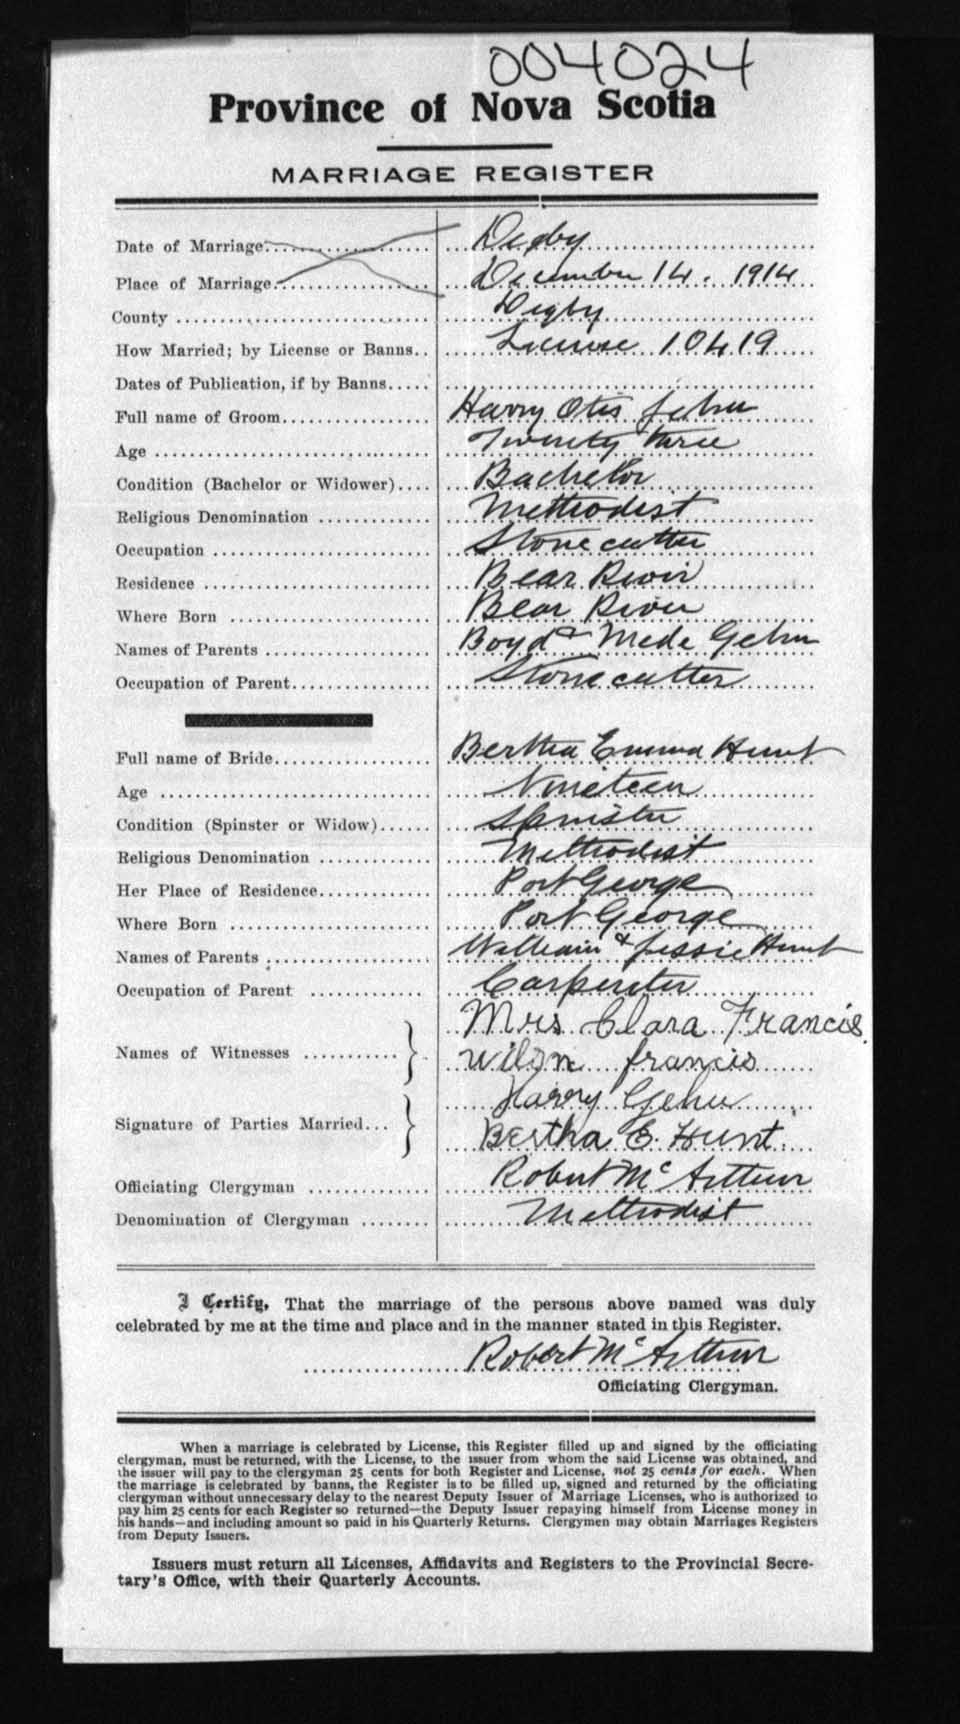 004024
Province of Nova Scotia
MARRIAGE REGISTER
Date of Marriage Digby
Place of Marriage December 14. 1914
County Digby
How Married; by License or Banns License 10419
Dates of Publication, if by Banns
Full name of Groom Harry Otis Gehu
Age Twenty three
Condition (Bachelor or Widower) Bachelor
Religious Denomination Methodist
Occupation Stone cutter
Residence Bear River
Where Born Bear River
Names of Parents Boyd & Mede Gehu
Occupation of Parent Stone cutter
Full name of Bride Bertha Emma Hunt
Age Nineteen
Condition (Spinster or Widow) Spinster
Religious Denomination Methodist
Her Place of Residence Port George
Where Born Port George
Names of Parents William & Jessie Hunt
Occupation of Parent Carpenter
Mrs Clara Francis.
Names of Witnesses
francis
Harry Gehu
Signature of Parties Married
Bertha E. Hunt.
Officiating Clergyman Robert McArthur
Denomination of Clergyman Methodist
I Certify, That the marriage of the persons above named was duly
celebrated by me at the time and place and in the manner stated in this Register.
Robert McArthur
Officiating Clergyman.
When a marriage is celebrated by License, this Register filled up and signed by the officiating
clergyman, must be returned, with the License, to the issuer from whom the said License was obtained, and
the issuer will pay to the clergyman 25 cents for both Register and License, not 25 cents for each. When
the marriage is celebrated by banns, the Register is to be filled up, signed and returned by the officiating
clergyman without unnecessary delay to the nearest Deputy Issuer of Marriage Licenses, who is authorized to
pay him 25 cents for each Register so returned—the Deputy Issuer repaying himself from License money in
his hands—and including amount so paid in his Quarterly Returns. Clergymen may obtain Marriages Registers
from Deputy Issuers.
Issuers must return all Licenses, Affidavits and Registers to the Provincial Secre-
tary's Office, with their Quarterly Accounts.